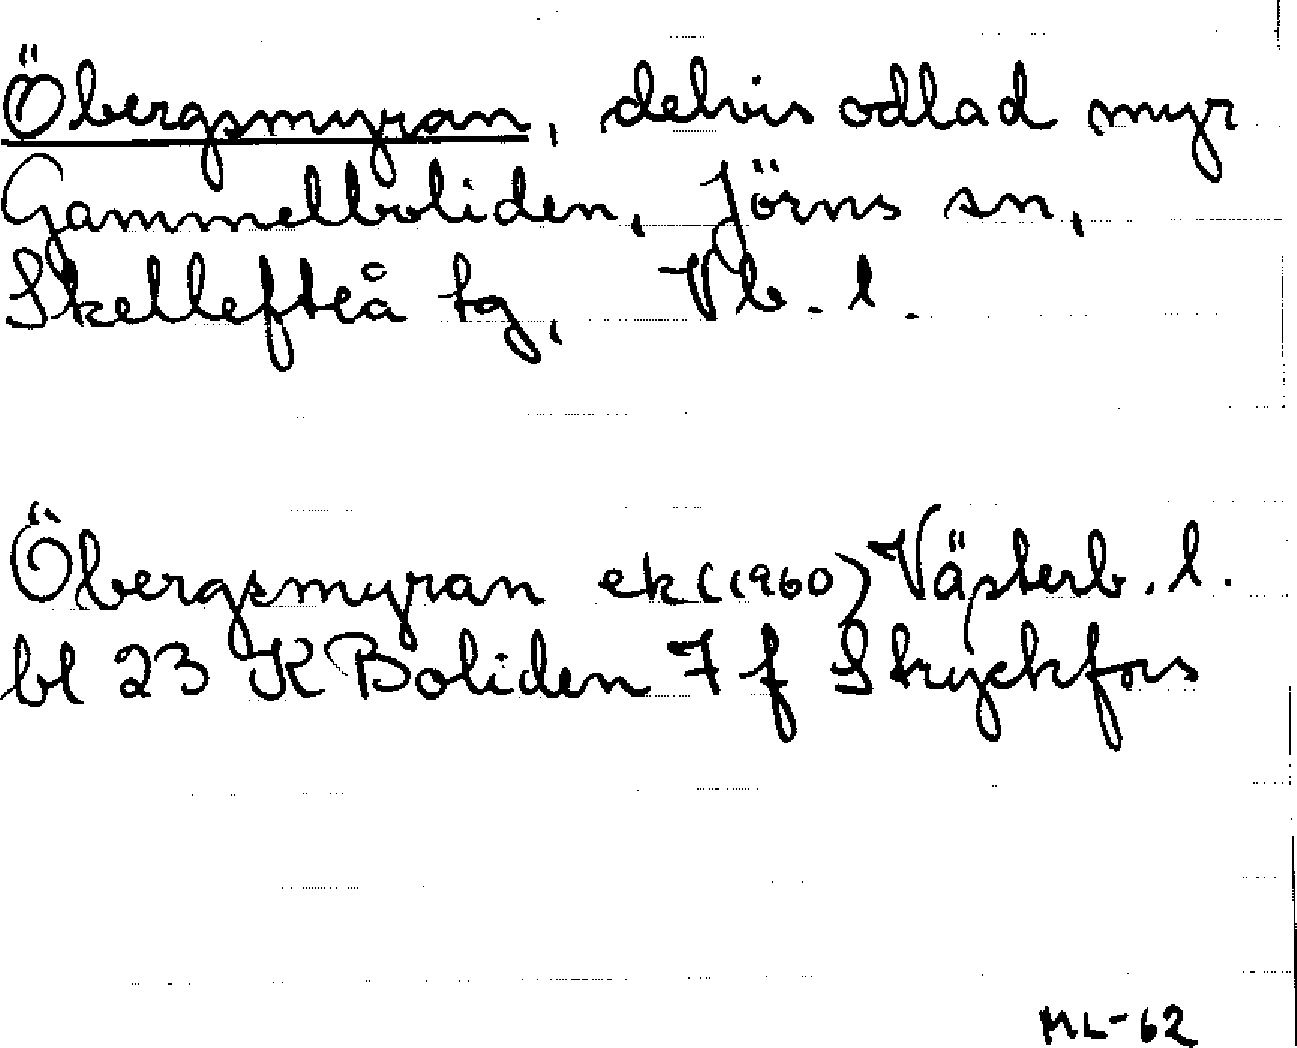 Öbergsmyran, delvis odlad myr
Gammelboliden, Jörns sn,
Skellefteå tg, Vb. l.
Öbergsmyran ek (1960) Västerb. l.
bl 23 K Boliden 7 f Stryckfors
ML-62